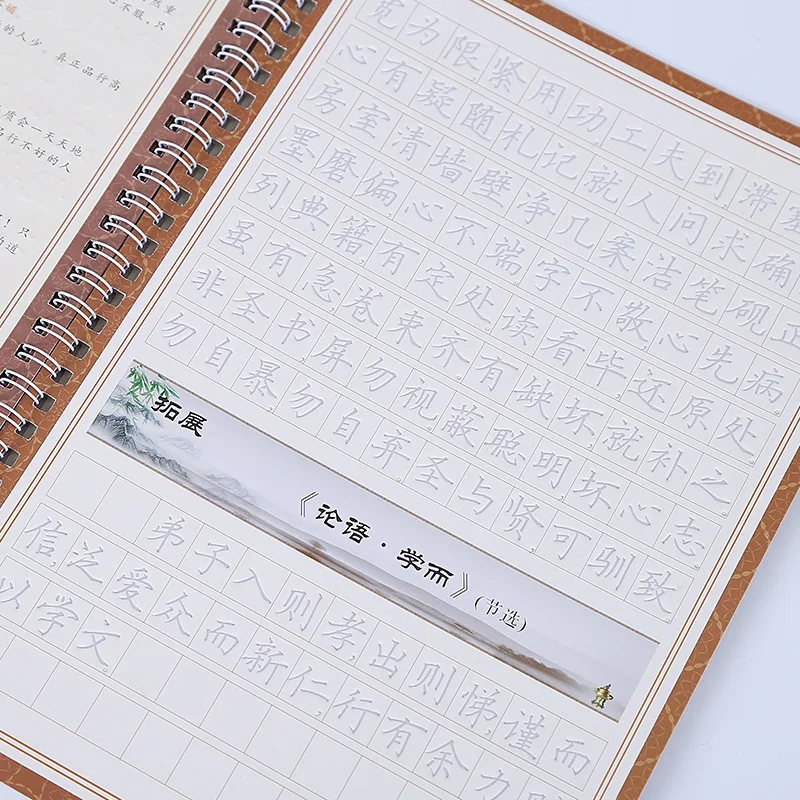 然重
不服,只
的人少。真正品行高
质会一天天地
品行不好的人
!只
的道
宽为限紧用功工夫到滞塞
心有疑随札记就人问求确
房室清墙壁净几案洁笔砚正
墨磨偏,心不端字不敬,心先病。
列典籍,有定处读看毕还原处。
虽有急,卷束齐有缺坏,就补之。
非圣书屏勿视蔽聪明坏心志。
勿自暴勿自弃圣与贤,可驯致。
拓展
《论语·学而》(节选)
弟子入则孝,出则悌,谨而
信,泛爱众而新仁,行有余力则
以学文。